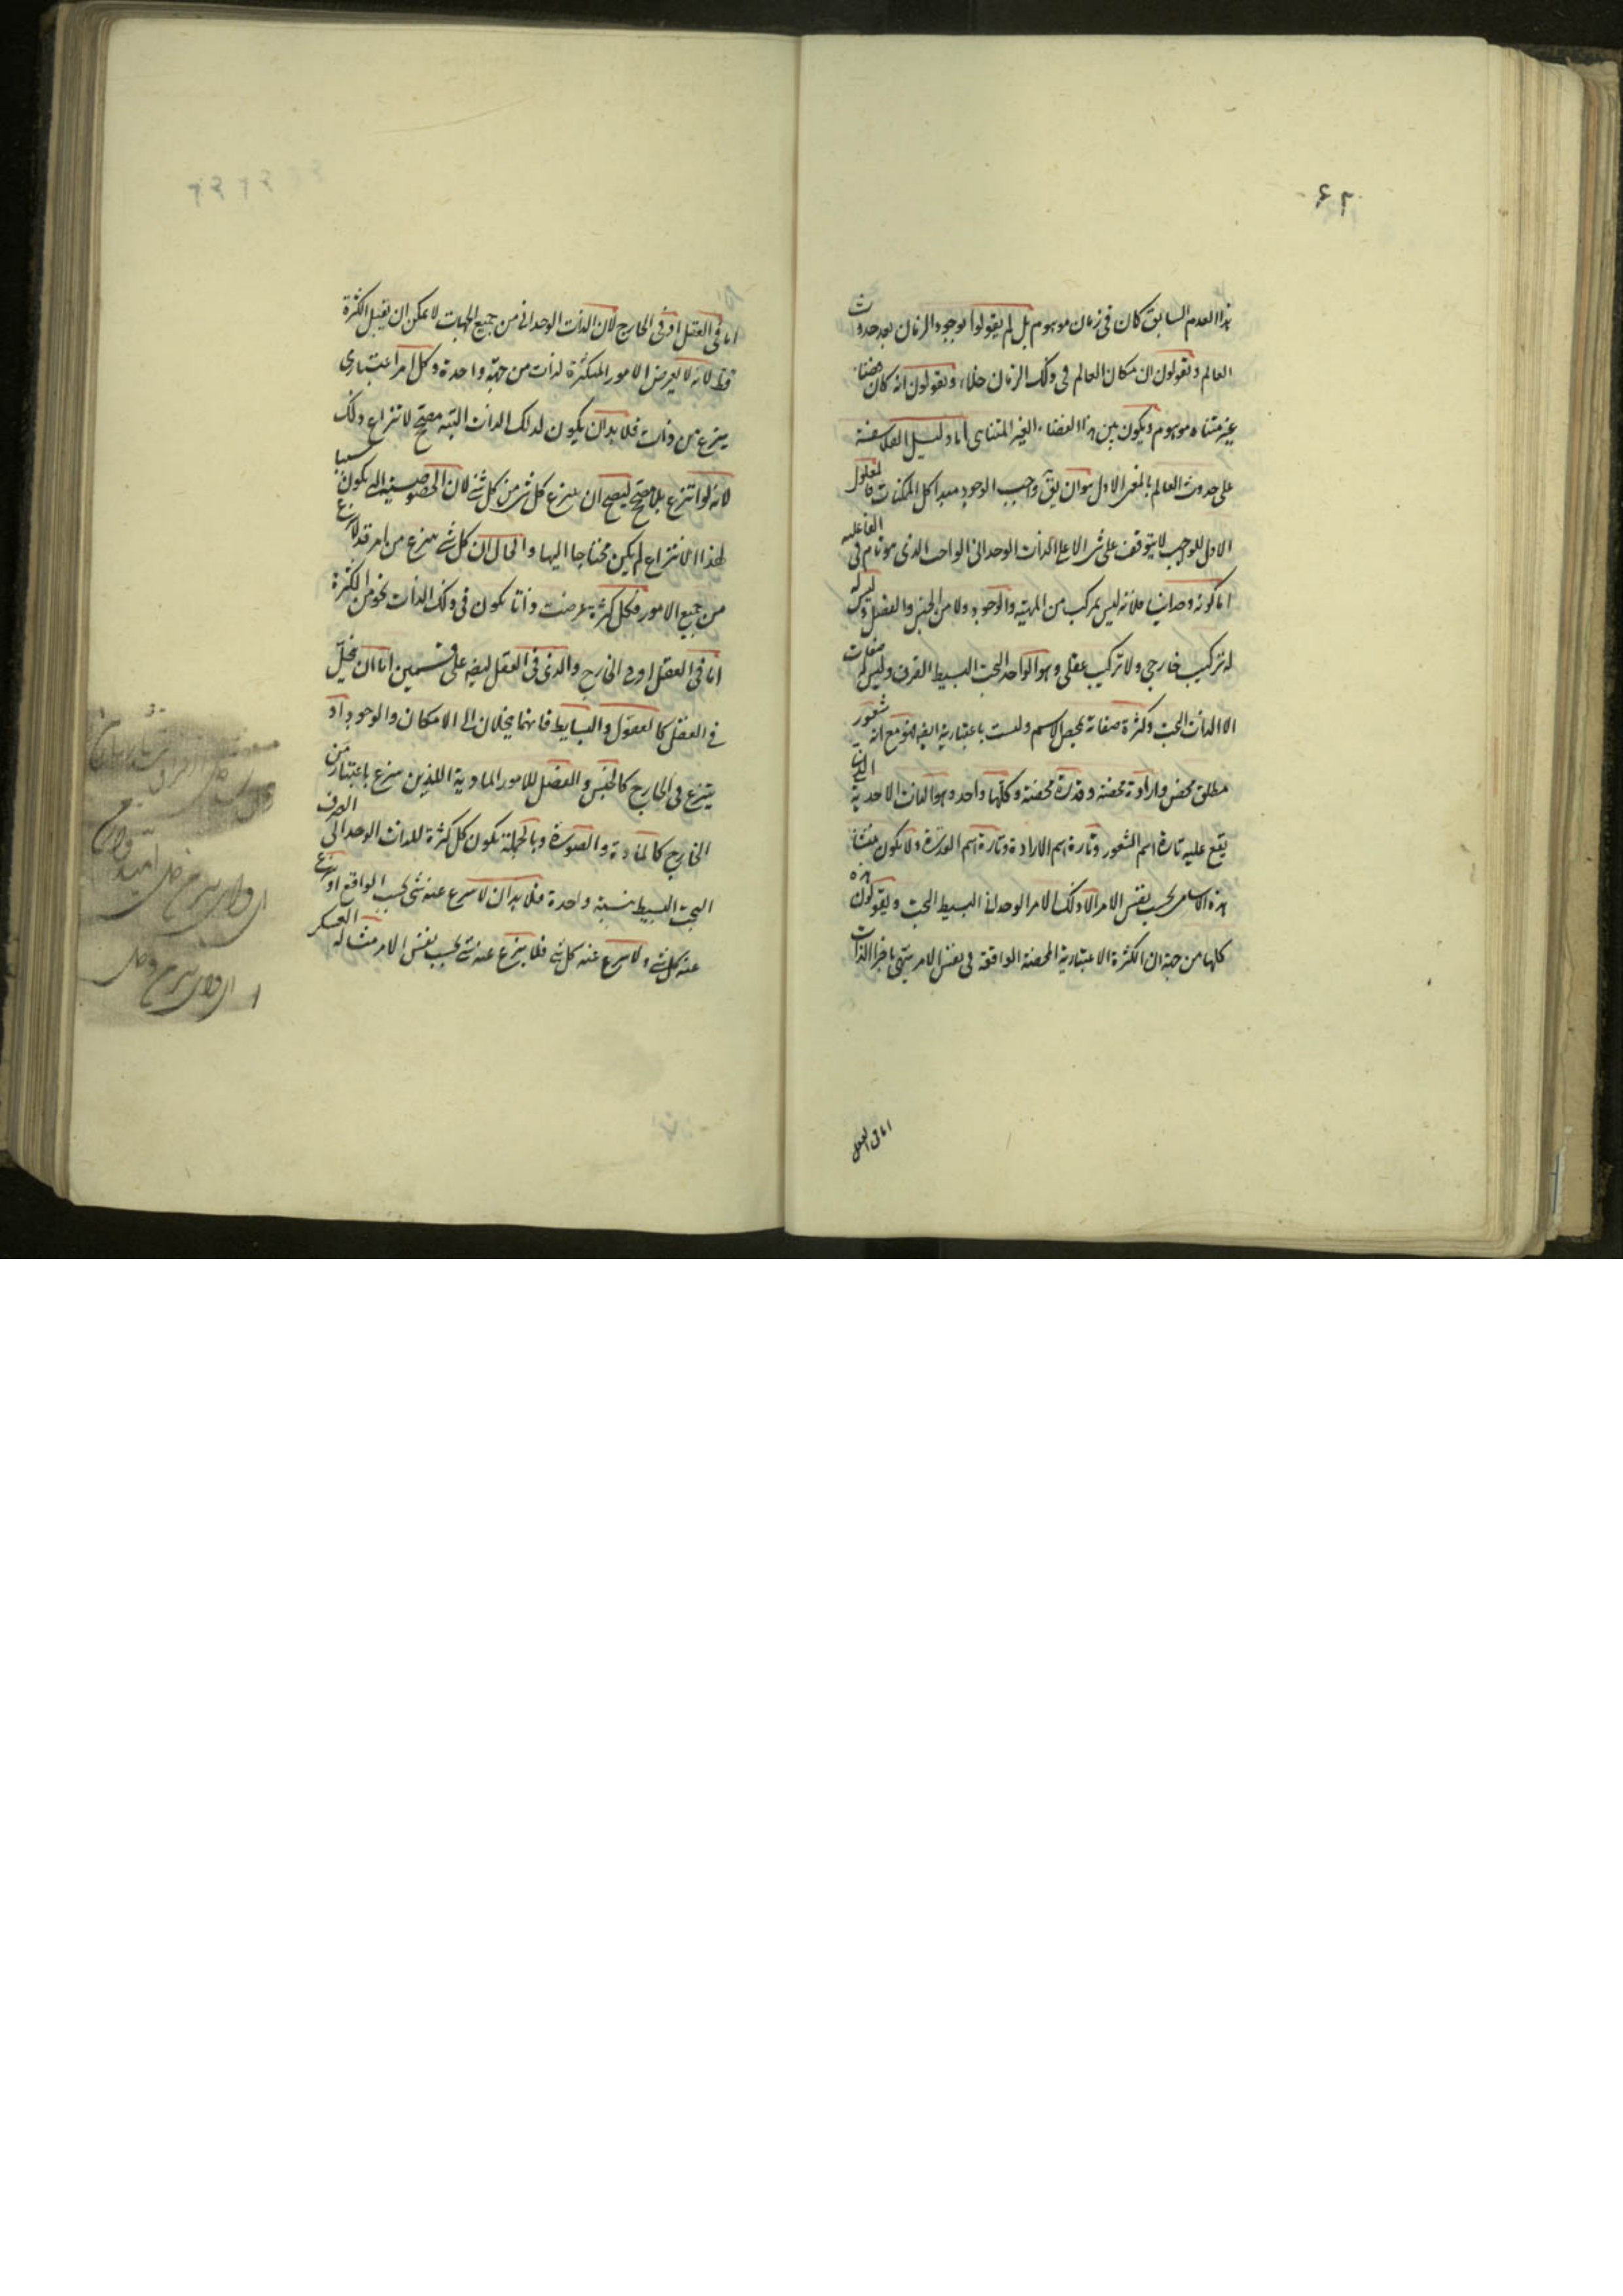 ۶۲
هذا العدم السابق كان فى زمان موهوم بل لم يقولوا بوجود الزمان بعد حدوث
العالم ويقولون ان مكان العالم فى ذلك الزمان خلاء ويقولون انه كان فضاء
غير متناه موهوم ويكون بين هذا الفضاء الغير المتناهى اما دليل الفلاسفة
على حدوث العالم بالمعنى الاول هو ان يق واجب الوجود مبدأ كل الممكنات فالمعلول
الاول للوجب لا يتوقف على شئ الا على الذات الوحدانى الواجب الذى هو تام فى الفاعلية
اما كونه وحدانيا فلانه ليس بمركب من المهية والوجود ولا من الجنس والفصل وليس
له تركيب خارجى ولا تركيب عقلى وهو الواحد البحت البسيط الصرف وليس له صفات
الا الذات البحت وكثرة صفاته بحسب الاسم وليست باعتبارية ايضا فهو مع انه شعور
مطلق محض وارادة محضة وقدرة محضة وكلها واحد وهو الذات الاحدية الذى
يقع عليه تارة اسم الشعور وتارة اسم الارادة وتارة اسم القدرة ولا يكون منشأ
هذه الاسامى بحسب نفس الامر الا ذلك الامر الوحدانى البسيط البحت ويقولون هذه
كلها من جهة ان الكثرة الاعتبارية المحضة الواقعة فى نفس الامر ينتهى باجزاء الذات
اما فى العقل
اما فى العقل او فى الخارج لان الذات الوحدانى من جميع الجهات لا يمكن ان يقبل الكثرة
قط لانه لا يعرض الامور المتكثرة لذات من جهة واحدة وكل امر اعتبارى
ينزع من ذات فلا بد ان يكون لذلك الذات البتة مصحح لانتزاع ذلك
لانه لو انتزع بلا مصحح ليصح ان ينزع كل شئ من كل شئ لان الخصوصية التى يكون سببا
لهذا الانتزاع لم يكن محتاجا اليها والحال ان كل شئ ينزع من امر قد لا ينزع
من جميع الامور فكل كثرة عرضت ذاتا يكون فى ذلك الذات نحو من الكثرة
اما فى العقل او فى الخارج والذى فى العقل ايضا على قسمين اما ان يحلّ
فى العقل كالعقول والبسايط فانهما يحلان الى الامكان والوجود او
ينتزع فى الخارج كالجنس والفصل للامور المادية اللذين ينزع باعتبار من
الخارج كالمادة والصورة وبالجملة يكون كل كثرة للذات الوحدانى الصرف
البحت البسيط نسبة واحدة فلا بد ان لا ينزع عنه شئ بحسب الواقع او ينزع
عنه كل شئ ولا ينزع عنه كل شئ فلا ينزع عنه شئ بحسب نفس الامر مثاله العسكر